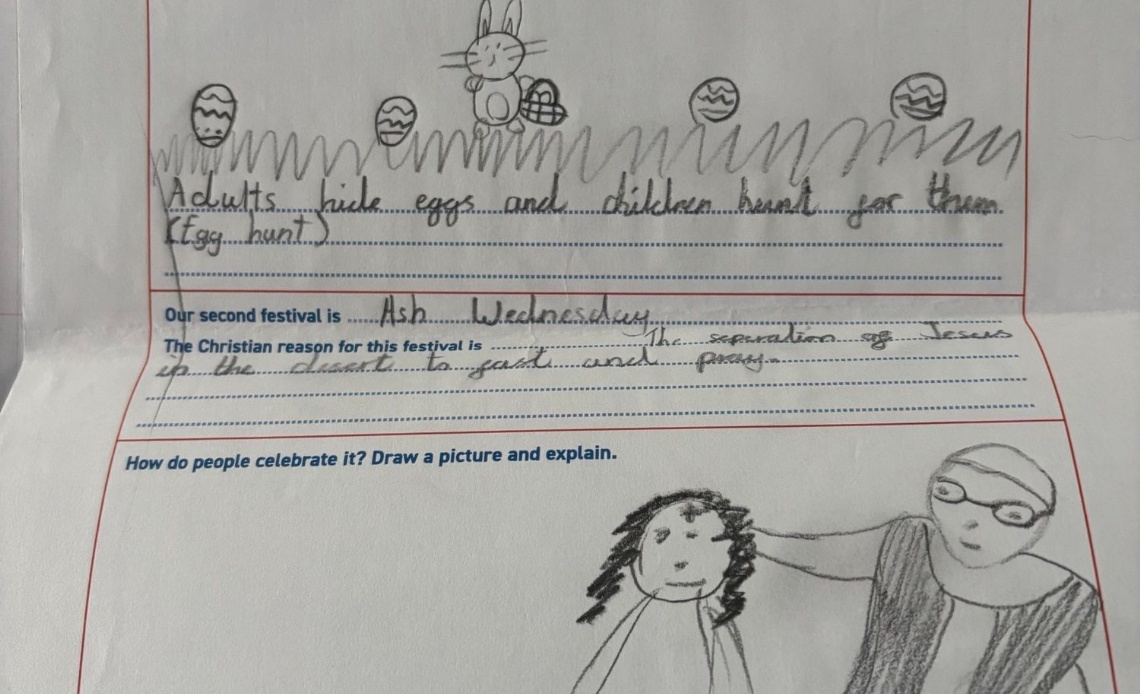 Adults hide eggs and children hunt for them
(Egg hunt)
Our second festival is Ash Wednesday
The Christian reason for this festival is The separation of Jesus
in the desert to fast and pray.
How do people celebrate it? Draw a picture and explain.